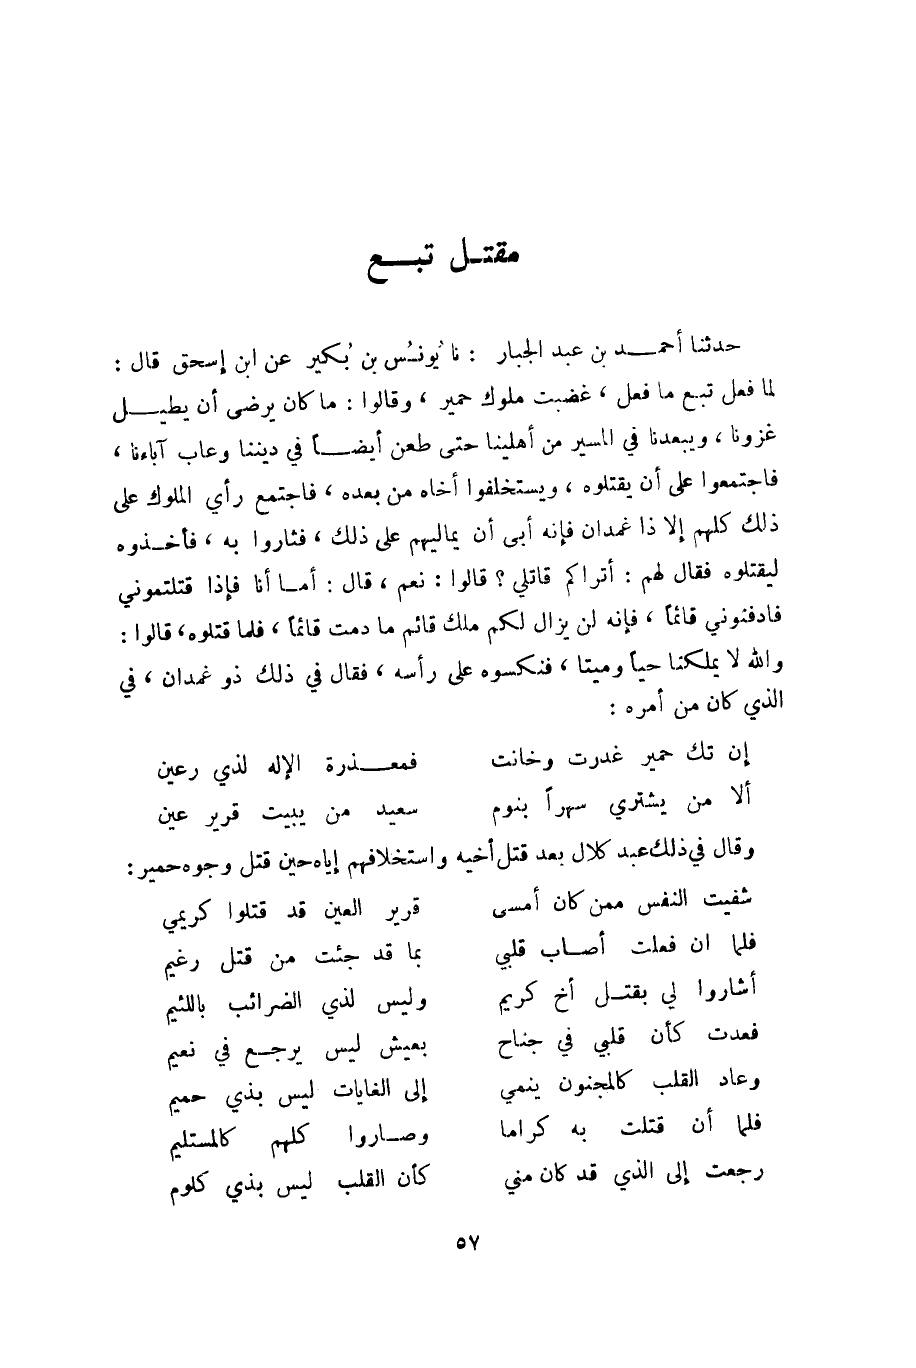 مقتل تبع
حدثنا أحمد بن عبد الجبار : نا يُونُس بن بُكير عن ابن إسحق قال :
لما فعل تبع ما فعل ، غضبت ملوك حمير ، وقالوا : ما كان يرضى أن يطيل
غزونا ، ويبعدنا في المسير من أهلينا حتى طعن أيضاً في ديننا وعاب آباءنا ،
فاجتمعوا على أن يقتلوه ، ويستخلفوا أخاه من بعده ، فاجتمع رأي الملوك على
ذلك كلهم إلا ذا غمدان فإنه أبى أن يماليهم على ذلك ، فثاروا به ، فأخذوه
ليقتلوه فقال لهم : أتراكم قاتلي ؟ قالوا : نعم ، قال : أما أنا فإذا قتلتموني
فادفنوني قائماً ، فإنه لن يزال لكم ملك قائم ما دمت قائماً ، فلما قتلوه، قالوا :
والله لا يملكنا حياً وميتا ، فنكسوه على رأسه ، فقال في ذلك ذو غمدان ، في
الذي كان من أمره :
إن تك حمير غدرت وخانت فمعذرة الإله لذي رعين
ألا من يشتري سهراً بنوم سعيد من يبيت قرير عين
وقال في ذلك عبد كلال بعد قتل أخيه واستخلافهم إياه حين قتل وجوه حمير :
شفيت النفس ممن كان أمسى قرير العين قد قتلوا كريمي
فلما ان فعلت أصاب قلبي بما قد جئت من قتل رغيم
أشاروا لي بقتل أخ كريم وليس لذي الضرائب باللئيم
فعدت كأن قلبي في جناح بعيش ليس يرجع في نعيم
وعاد القلب كالمجنون ينمي إلى الغايات ليس بذي حميم
فلما أن قتلت به كراما وصاروا كلهم كالمستليم
رجعت إلى الذي قد كان مني كأن القلب ليس بذي كلوم
٥٧